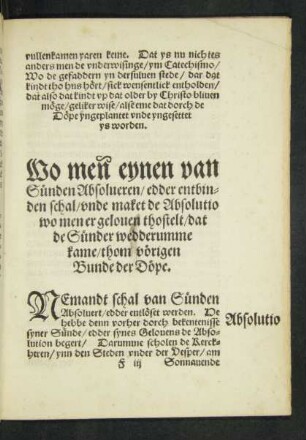 vullenkamen yaren kene. Dat ys nu nichtes
anders men de vnderwisinge/ ym Catechismo/
Wo de gefaddern yn dersuluen stede/ dar dat
kindt tho hus hört/ sick wensentlick entholden/
dat also dat kindt vp dat older by Christo bliuen
möge/ geliker wise/ alße eme dat dorch de
Döpe yngeplantet vnde yngesettet
ys worden.
Wo men eynen van
Sünden Absolueren/ edder entbin-
den schal/ vnde maket de Absolutio
wo men er gelouen thostelt/ dat
de Sünder wedderumme
kame/ thom vörigen
Bunde der Döpe.
NEmandt schal van Sünden
Absoluert/ edder entlöset werden. He
hebbe denn vorher dorch bekentenisse
syner Sünde/ edder synes Gelouens de Abso-
lution begert/ Darumme scholen de Kerck-
hern/ ynn den Steden vnder der Vesper/ am
F iij Sonnauende
Absolutio